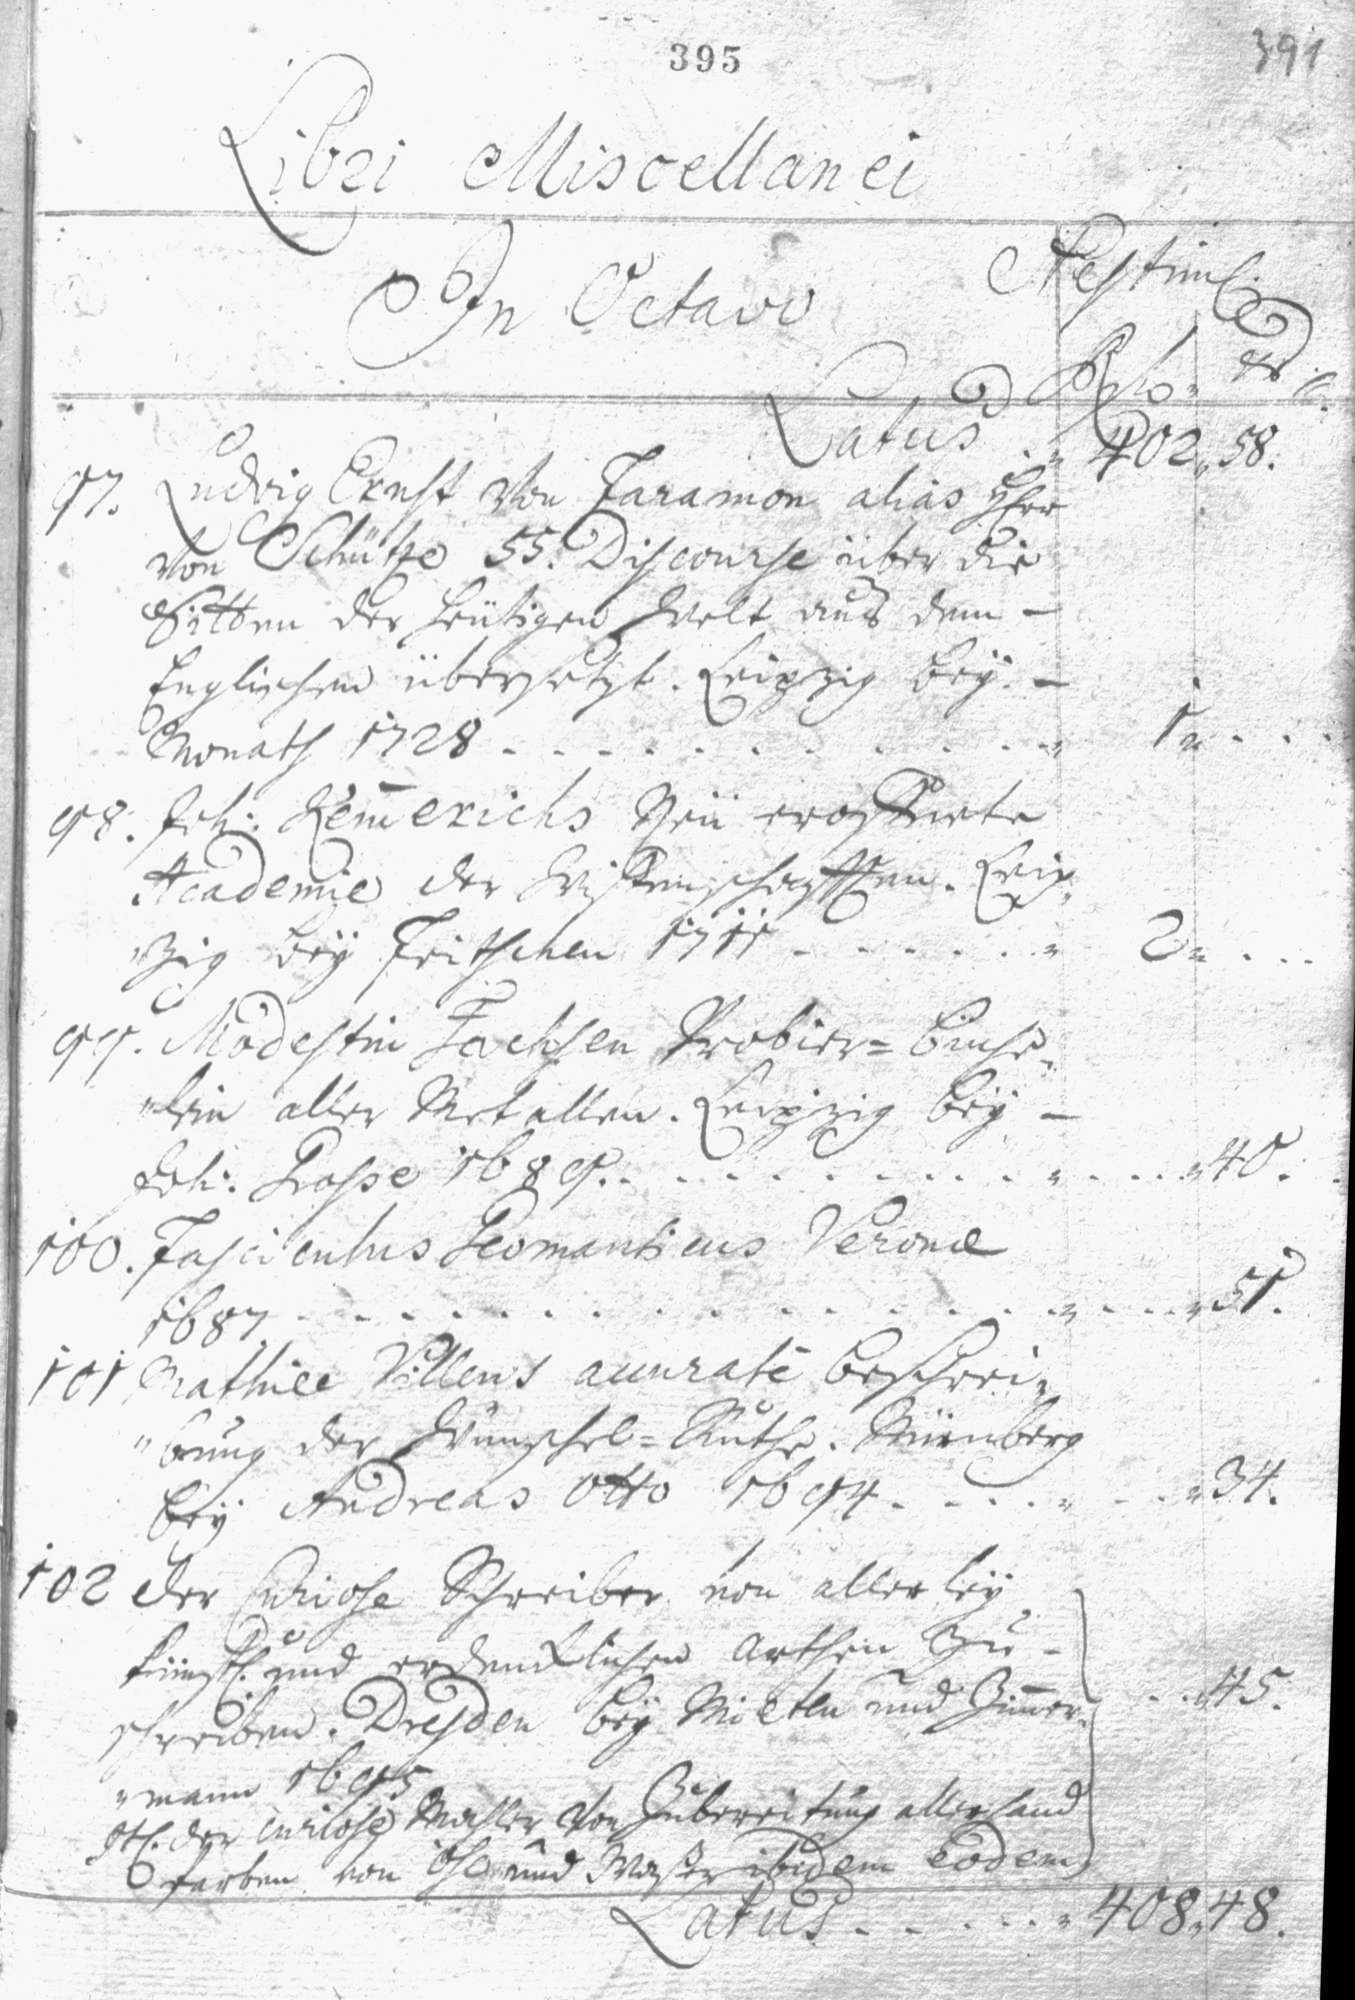 395
391
Libri Miscellanei
In Octavo
Aestim
Rub. x
Latus 402. 58.
97. Ludvig Ernst von Faramon alias Herr
von Schütze 55. Discourse über die
Sitten der heütigen Welt aus dem —
Englischen übersetzt. Leipzig beÿ —
Monath 1728 1.
98. Joh: Zem̄erichs Neü eröffnete
Academie der Wissenschafften. Leip„
„zig beÿ Fritschen 1711 2.
99. Modestin Fachsen Probier= büche„
„lein aller Metallen. Leipzig beÿ —
Joh: Grosse 1689. 40.
100. Fasciculus Geomanticus Veronæ
1687 51.
101 Mathiæ Villens accurate beschrei„
„bung der Wünschel= Ruthe. Nürnberg
beÿ Andreas Otto 1694 34.
102 der Curiose Schreiber von allerleÿ
künstl. und erdencklichen arthen Zu -
schreiben. Dresden beÿ Mieten und Zim̄er„ 45.
„mann 1695
It. der curiose Mahler von Zubereitung allerhand
farben von öhl und Wasser ibidem eodem
Latus 408. 48.